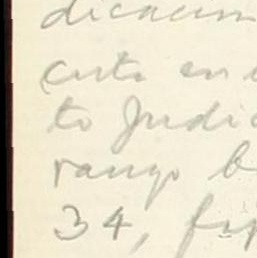 dicacion
cuta en
to Judic
rango b
34, fij